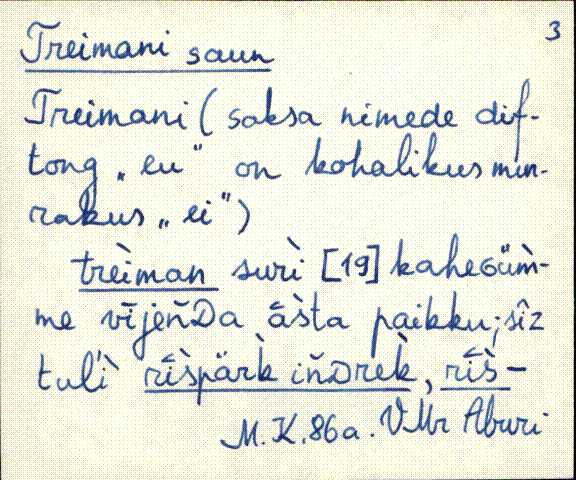 3
Treimani saun
Treimani (saksa nimede dif-
tong „eu" on kohalikus mur-
rakus „ei")
trèiman surì [19] kahecüm̀-
me vījeňDa ā́sta paikku; sîz
tuľì rī́spä̀rk̀ iňDrek̀, rī́s̀-
M.K. 86a. VMr Aburi